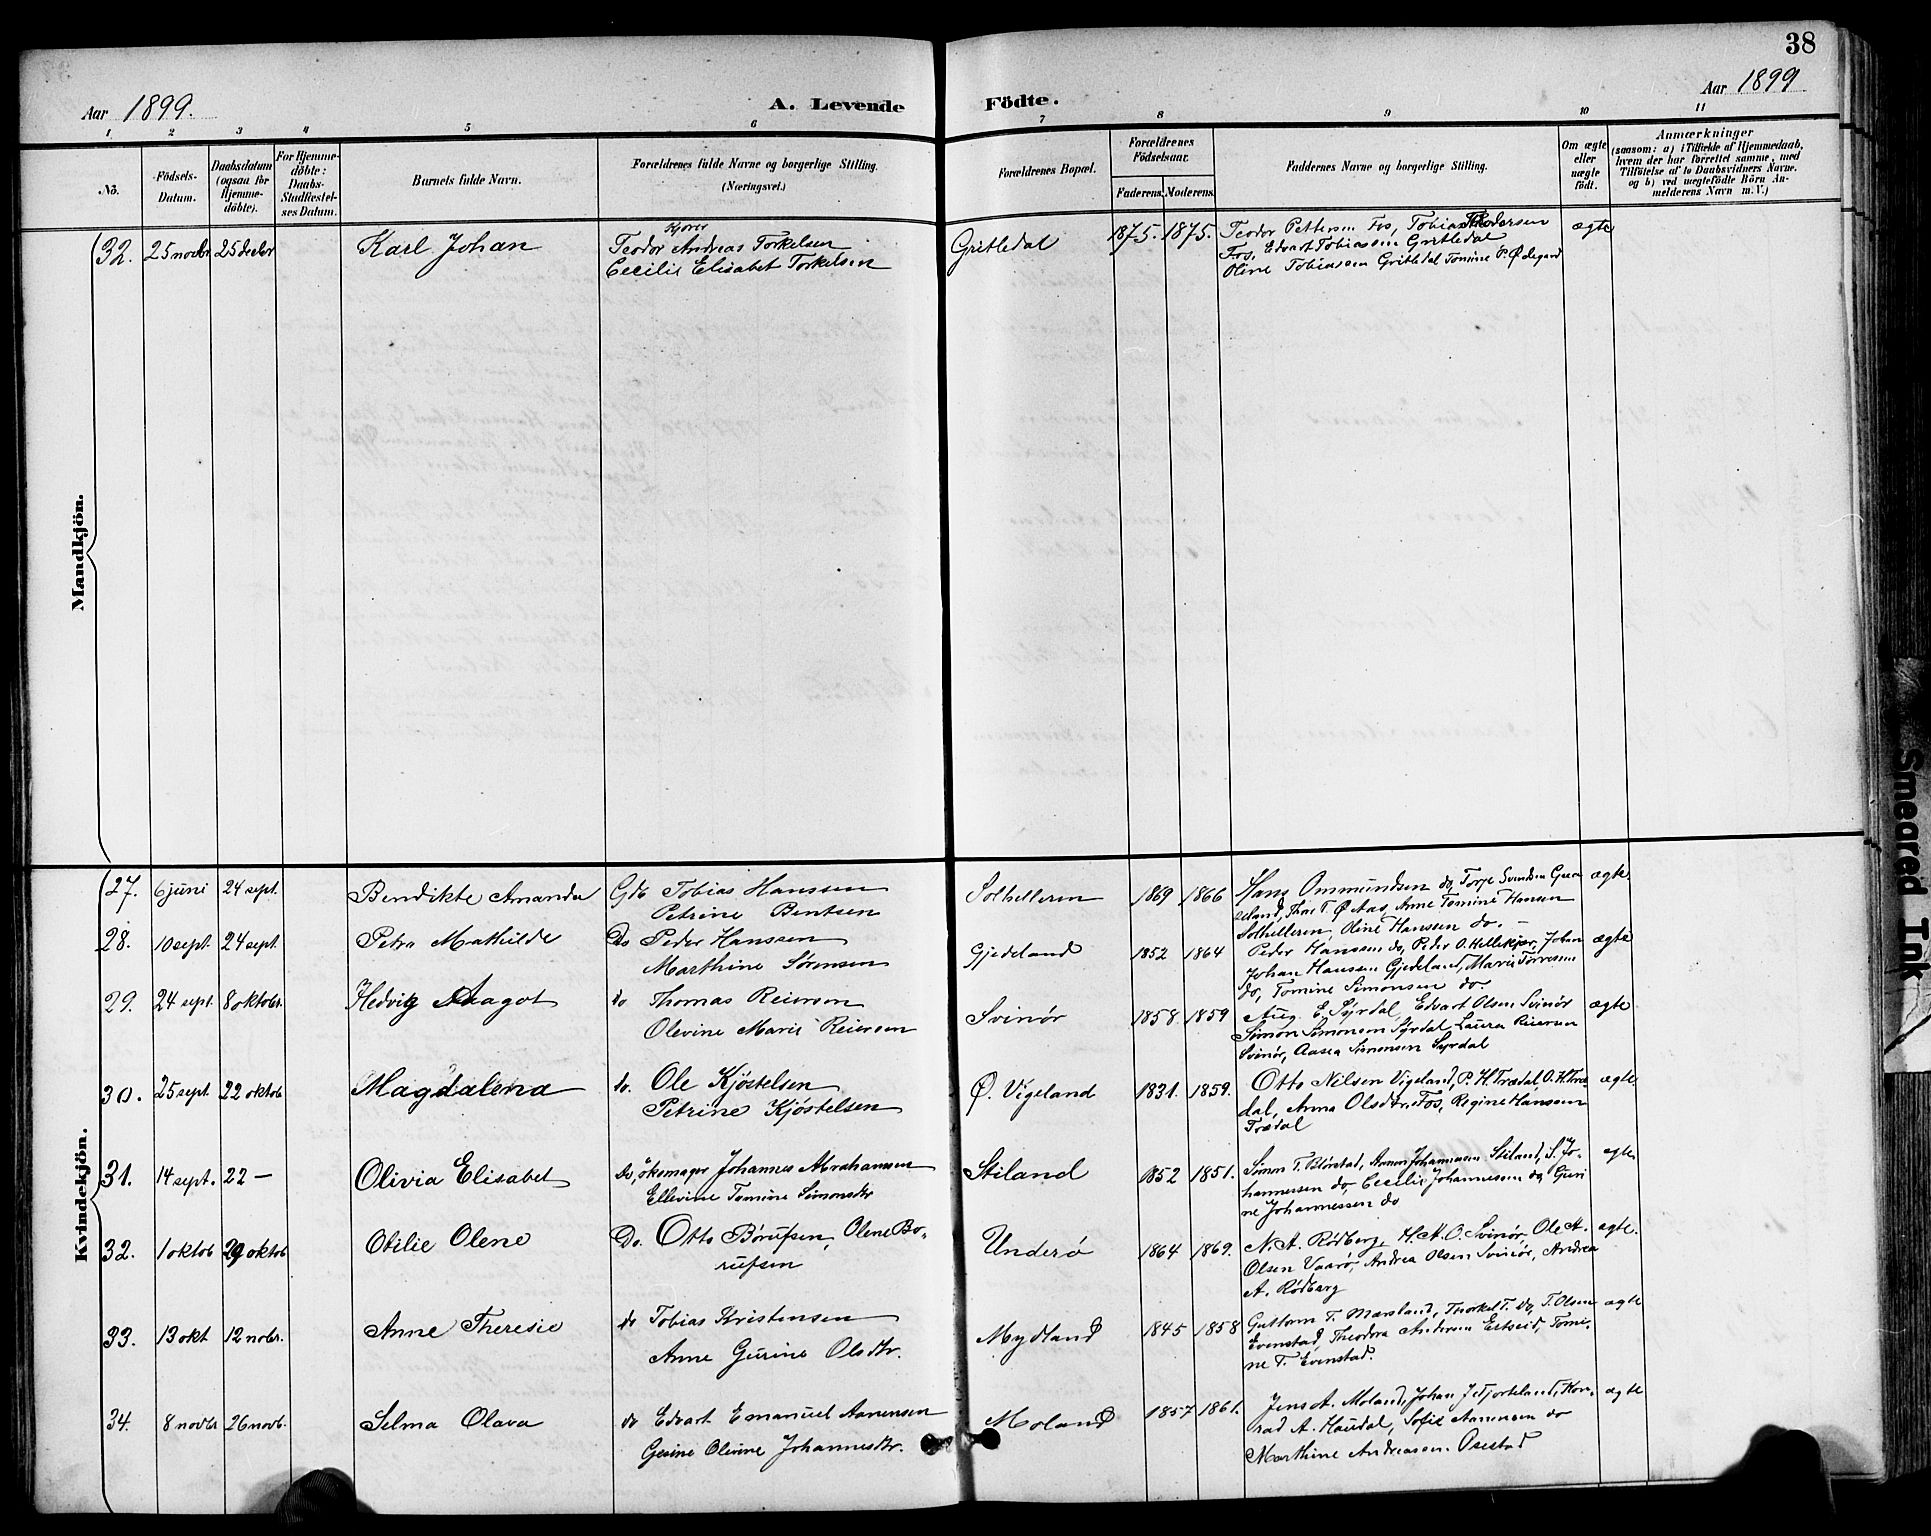 38
Aar 1899.
A. Levende Födte.
Aar 1899
1 2 3 4 5 6 7 8 9 10 11
No.
Födsels-Datum.
Daabsdatum (ogsaa for Hjemme-döbte).
For Hjemme-döbte: Daabs-Stadfæstel-ses Datum.
Barnets fulde Navn.
Forældrenes fulde Navne og borgerlige Stilling.
(Næringsvei.)
Forældrenes Bopæl.
Forældrenes Födselsaar.
Faderens. Moderens.
Faddernes Navne og borgerlige Stilling.
Om ægte eller uægte födt.
Anmærkninger
(saasom: a) i Tilfælde af Hjemmedaab,
hvem der har forrettet samme, med
Tilföielse af to Daabsvidners Navne,
og b) ved uægtefödte Börn An-
melderens Navn m. V.)
Mandkjön.
32. 25 novbr 25 decbr Karl Johan
Teodor Andreas Torkelsen
Cecilie Elisabet Torkelsen
Gritledal 1875. 1875.
Teodor Pettersen Fos, Tobias Pedersen
Fos, Edvart Tobiassen Gritledal
Oline Tobiassen Gritledal Tomine P. Ødegard
ægte
Kvindekjön.
27. 6 juni 24 sept. Bendikte Amanda
Gdb Tobias Hanssen
Petrine Bentsen
Solhelleren 1869 1866
Hans Ommundsen do, Torje Svendsen
Aas, Anne Tomine Hansen
Solhelleren, Oline Hanssen do.
ægte.
28. 10 sept. 24 sept. Petra Mathilde
Do Peder Hanssen
Marthine Sørensen
Gjedeland 1852 1864
Peder Hanssen do, Peder O. Hellekjær, Johan
Johan Hanssen Gjedeland, Marie Torresen
do, Tomine Simonsen do
ægte
29. 24 sept. 8 oktobr. Hedvig Aagot
do Thomas Reiersen
Olevine Marie Reiersen
Svinør 1858. 1859
Aug. E. Syrdal, Edvart Olsen Svinør
Simon Simonsen Syrdal, Laura Reiersen
Svinør, Aasea Simonsen Syrdal
ægte
30. 25 sept. 22 oktob Magdalena
do. Ole Kjøstelsen
Petrine Kjøstelsen
Ø. Vigeland 1831. 1859.
Otto Nilsen Vigeland, P. H. Trædal, O. H. Træ
dal, Anna Olsdtr. Fos, Regine Hanssen
Trædal
ægte
31. 14 sept. 22 — Olivia Elisabet
Do, øksmager Johannes Abrahamsen
Ellevine Tomine Simonsdtr
Stiland 1852 1851.
Simon T. Bìørstad, Johannessen Stiland, S. Jo-
hannessen do, Cecilie Johannessen og Guri
ne Johannessen do
ægte.
32. 1 oktob 29 oktob Otilie Olene
Do. Otto Børufsen, Olene Bø-
rufsen
Underø 1864 1869.
N. A. Rødberg, H. A. O. Svinør, Ole A.
Olsen Vaarø, Andrea Olsen Svinør, Andrea
A. Rødberg
ægte.
33. 13 okt 12 nobr. Anne Theresie
do Tobias Kristensen
Anne Gurine Olsdtr.
Mydland 1845 1858
Guttorm T. Mæsland, Thorkel T. do, T. Olsen
Evenstad, Theodora Andersen Ertseid, Tomi-
ne T. Evenstad.
ægte
34. 8 novbr 26 novb. Selma Olava
do Edvart Emanuel Aanensen
Gesine Olivine Johannesdtr.
Moland 1857 1861.
Jens A. Moland, Johan J. Fjorteland, Kon-
rad A. Haudal, Sofie Aanensen do
Marthine Andreassen Osestad
ægte
Smeared Ink